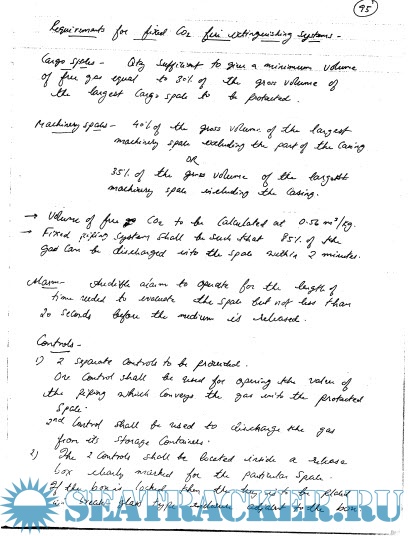 95
Requirements for fixed CO2 fire extinguishing systems -
Cargo spaces - Qty sufficient to give a minimum volume
of free gas equal to 30% of the gross volume of
the largest Cargo space to be protected.
Machinery spaces - 40% of the gross volume of the largest
machinery space excluding the part of the Casing
OR
35% of the gross volume of the largest
machinery space including the Casing.
→ Volume of free CO2 to be Calculated at 0.56 m³/kg.
→ Fixed piping system shall be such that 85% of the
gas can be discharged into the space within 2 minutes.
Alarm - Audible alarm to operate for the length of
time needed to evacuate the space but not less than
20 seconds before the medium is released.
Controls -
1) 2 separate Controls to be provided.
One Control shall be used for opening the valve of
the piping which conveys the gas into the protected
Space.
2nd Control shall be used to discharge the gas
from its storage Container.
2) The 2 Controls shall be located inside a release
box clearly marked for the particular Space.
If the box is locked then the key is to be placed
in break glass type enclosure adjacent to the box
SEATRACKER.RU